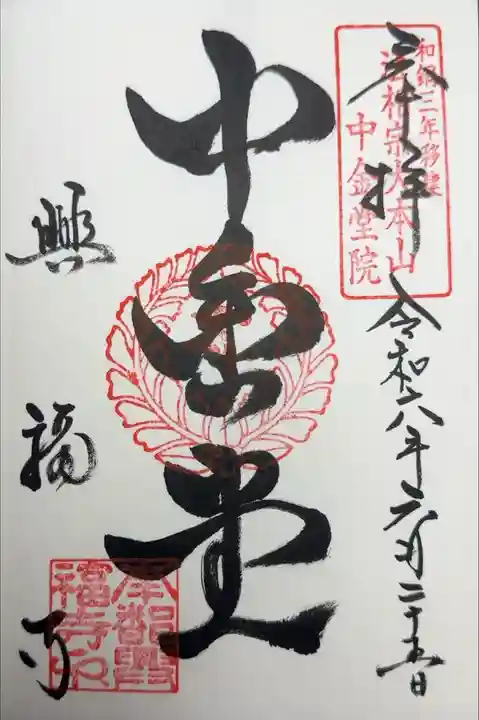 奉拝
和銅三年移建
法相宗大本山
中金堂院
令和六年六月二十五日
中金堂
興福寺
南都興
福寺印